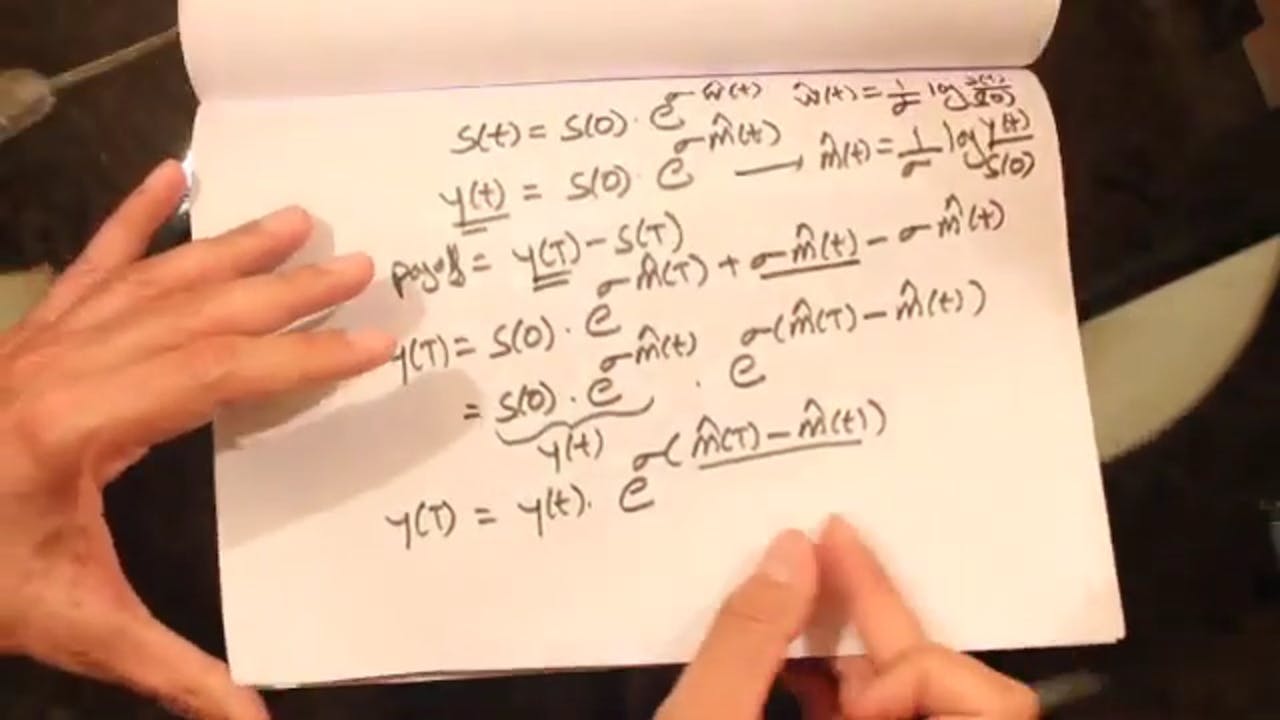 S(t) = S(0) · e^{σ ŵ(t)} ŵ(t) = 1/σ log S(t)/S(0)
y(t) = S(0) · e^{σ m̂(t)} → m̂(t) = 1/σ log y(t)/S(0)
payoff = y(T) - S(T)
y(T) = S(0) · e^{σ m̂(T) + σ m̂(t) - σ m̂(t)}
= S(0) · e^{σ m̂(t)} · e^{σ(m̂(T) - m̂(t))}
y(t)
y(T) = y(t) · e^{σ(m̂(T) - m̂(t))}